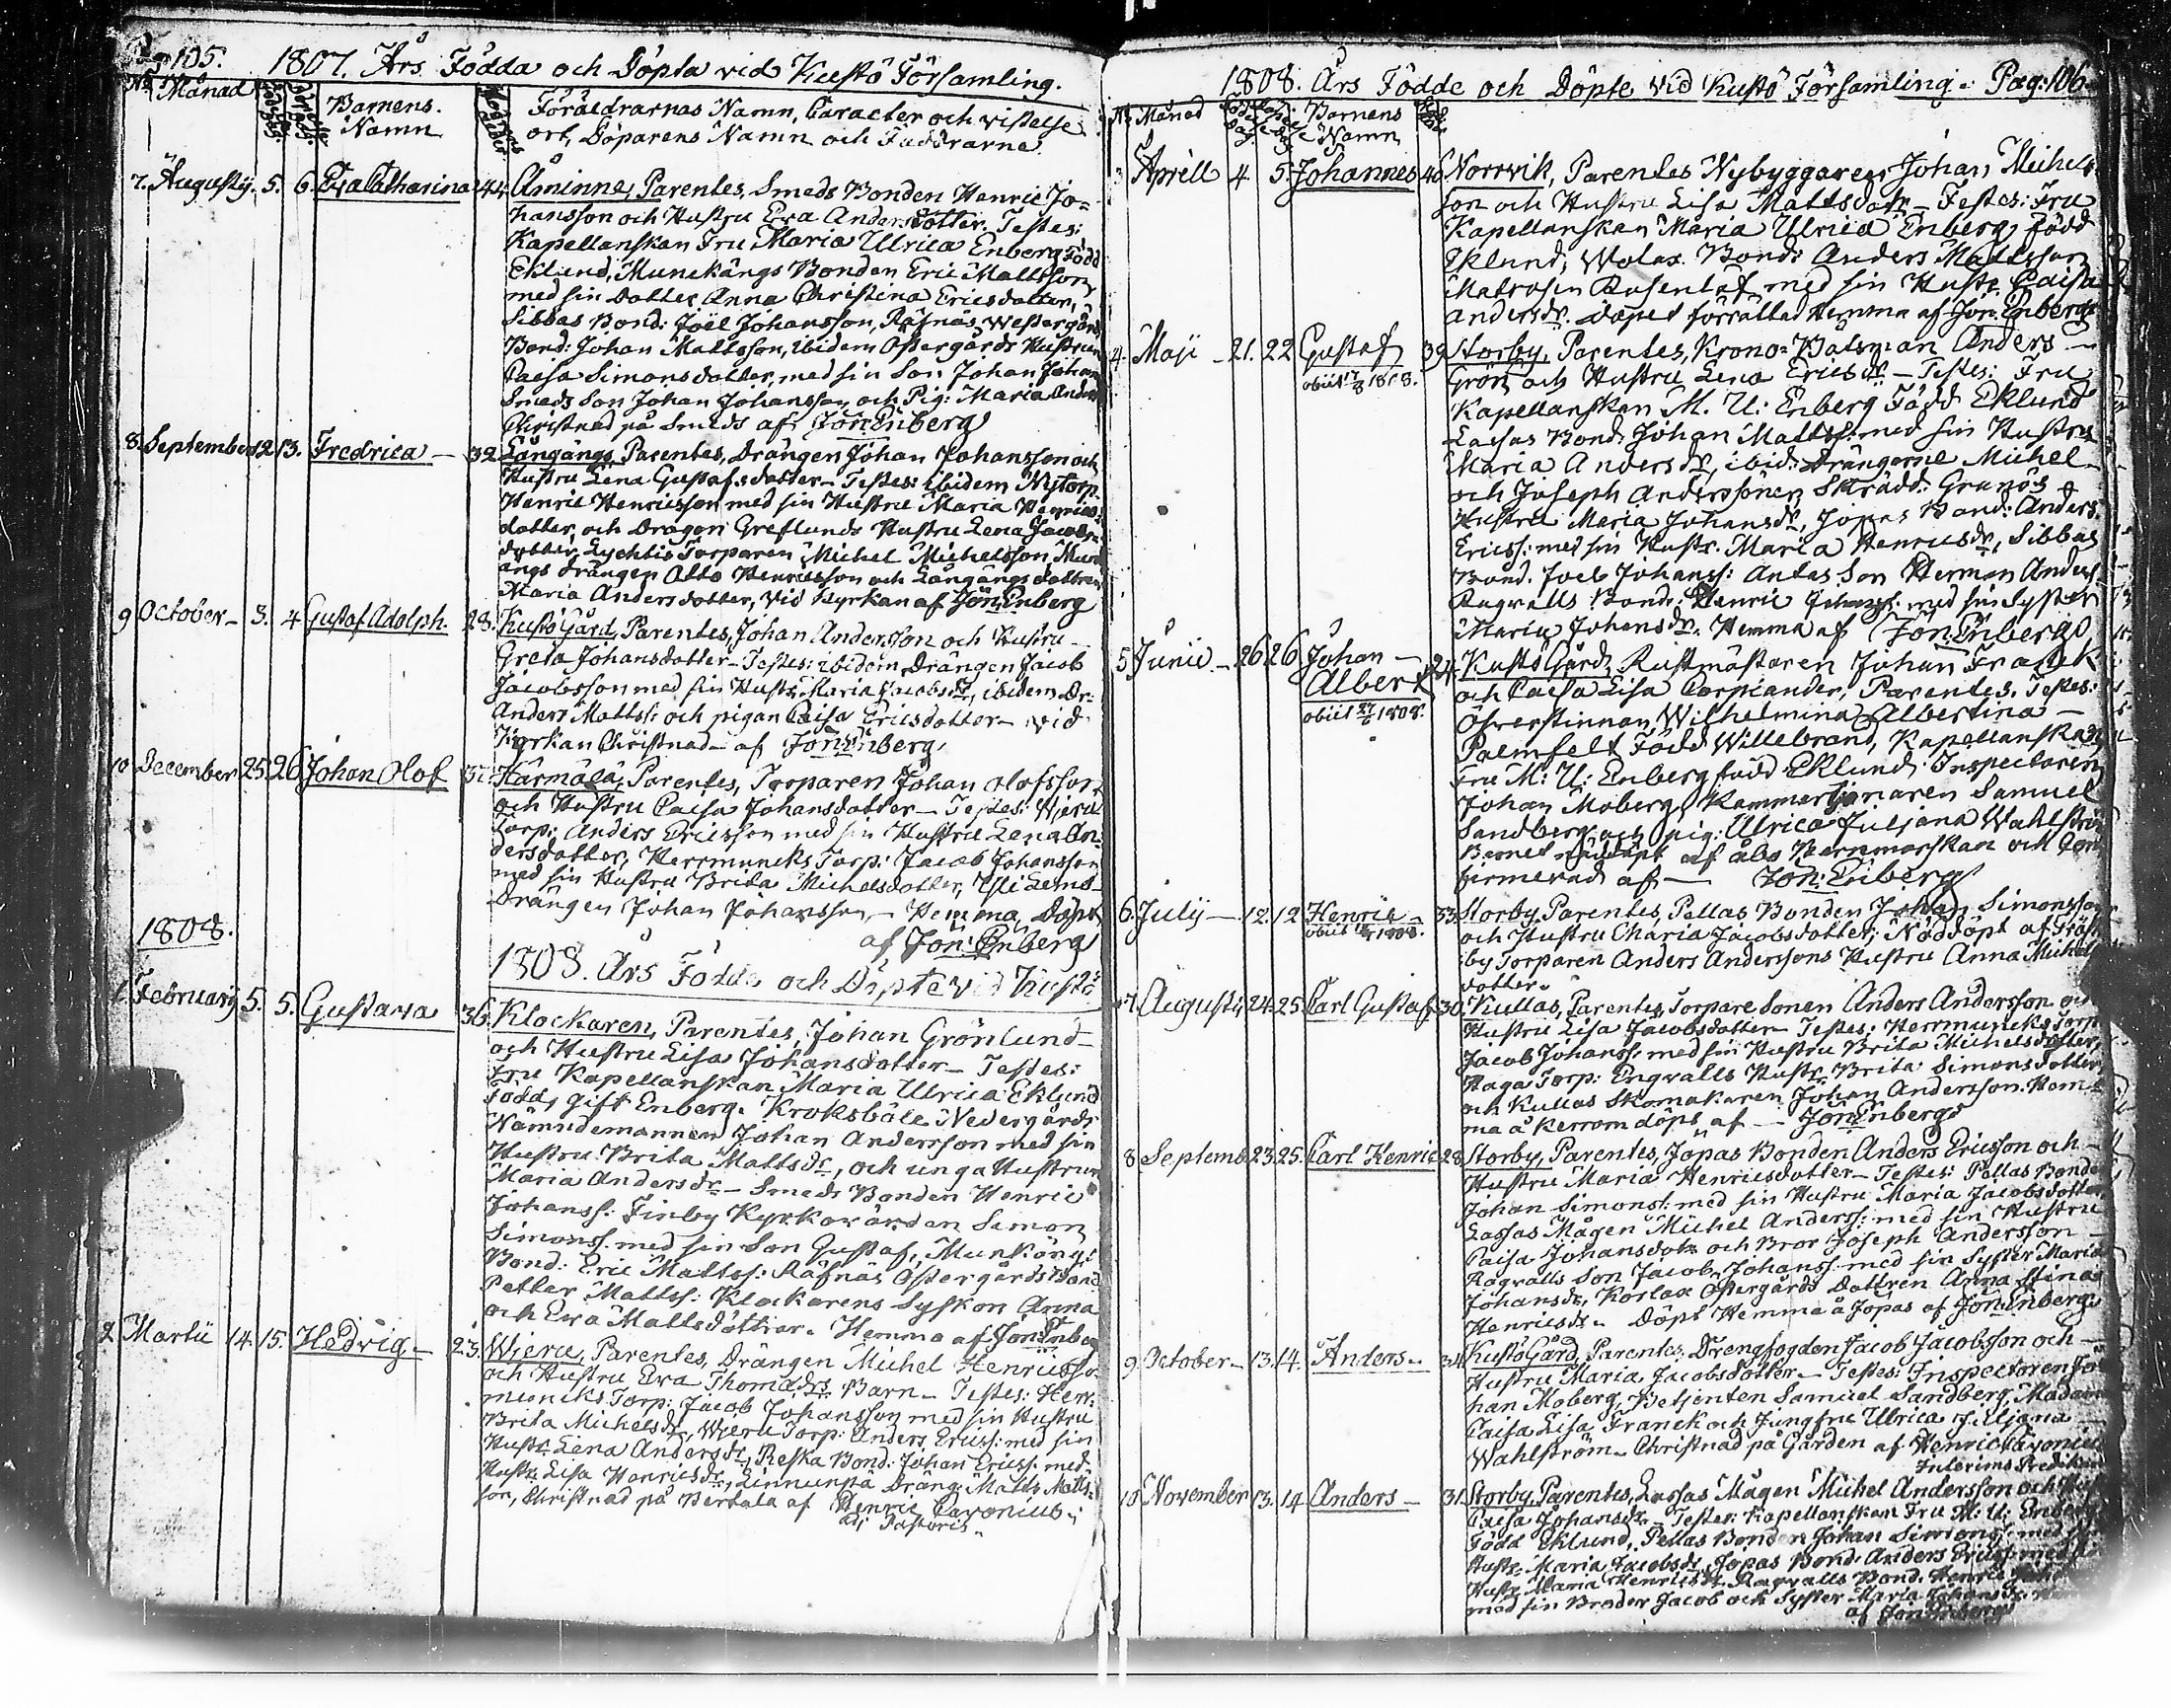 Pag 105. 1807. Års Födda och Döpta vid Kustö Församling.
No Månad Barnens Namn Föräldrarnas Namn, Caracter och vistelse
ort, Döparens Namn och Faddrarne.
7. Augustij. 5. 6. Eva Catharina 44. Åminne, Parentes, Smeds Bonden Henric Jo=
hansson och Hustru Eva Andersdotter. Testes:
Kapellanskan Fru Maria Ulrica Enberg Född
Eklund, Munckängs Bonden Eric Mattsson
med sin dotter Anna Christina Ericsdotter,
Sibbas Bond: Joël Johansson, Räfnäs Westergårds
Bond: Johan Mattsson, ibidem Östergårds Hustrun
Caisa Simonsdotter, med sin Son Johan Johan
Smeds Son Johan Johansson och Pig: Maria Anders
Christnad på Smeds af Jon: Enberg
8. September 12 13. Fredrica — 32 Långängs Parentes, Drängen Johan Johansson och
Hustru Lena Gustafsdotter — Testes: ibidem Nytorp.
Henric Henricsson med sin Hustru Maria Henrics:
dotter, och Dragon Greflunds Hustru Lena Jacobs:
dotter, Lychtis Torparen Michel Michelsson, Munk
ängs drängen Otto Henricsson och Långängs dottren
Maria Andersdotter, vid Kyrkan af Jon: Enberg
9 October — 3. 4 Gustaf Adolph. 28. Kustö Gård, Parentes, Johan Andersson och Hustru
Greta Johansdotter — Testes: ibidem Drängen Jacob
Jacobsson med sin Hustr. Maria Jacobsdr, ibidem Dr:
Anders Mattss: och pigan Caisa Ericsdotter — vid
Kyrkan Christnad — af Jon: Enberg
10 December 25. 26. Johan Olof 37. Härmälä, Parentes, Torparen Johan Olofsson
och Hustru Caisa Johansdotter — Testes: Wieru
Torp: Anders Ericsson med sin Hustru Lena An:
dersdotter, Herrmuncks Torp: Jacob Johansson
med sin Hustru Brita Michelsdotter,
Drängen Johan Johansson, — Hemma Döpt
af Jon: Enberg
1808.
1808. Års Födde och Döpte vid Kustö
1. February 5. 5. Gustava 36. Klockaren, Parentes, Johan Grönlund —
och Hustru Lisa Johansdotter — Testes:
Fru Kapellanskan Maria Ulrica Eklund
Född, gift Enberg. Kroksbäle Nedergårds
Nämndemannen Johan Andersson med sin
Hustru Brita Mattsdr, och unga Hustrun
Maria Andersdr — Smeds Bonden Henric
Johanss: Finby Kyrkovärden Simon
Simonss. med sin Son Gustaf, Munkängs
Bond: Eric Mattss: Räfnäs Östergårds Bond
Petter Mattss: Klockarens Syskon Anna
och Eva Mattsdöttrar. Hemma af Jon: Enberg
2 Martii 14. 15. Hedvig — 23. Wieru, Parentes, Drängen Michel Henricsson
och Hustru Eva Thomadr Barn — Testes: Herr:
muncks Torp: Jacob Johansson med sin Hustru
Brita Michelsdr, Wieru Torp: Anders Ericss: med sin
Hustr Lena Andersdr, Reska Bond: Johan Ericss. med
Hustr. Lisa Henricsdr, Linnunpä Dräng: Matts Matts:
son, Christnad på Bertala af Henric Cavonius.
Adj: Pastoris.
1808. Års Födde och Döpte vid Kustö Församling. Pag: 106.
No Månad Barnens Namn
3 Aprill 4 5. Johannes 40 Norrvik, Parentes Nybyggaren Johan Michels
son och Hustru Lisa Mattsdotr — Testes: Fru
Kapellanskan Maria Ulrica Enberg, född
Eklund, Wolax Bond: Anders Mattsson
Matrosen Rosenlöf med sin Hustr. Caisa
Andersdr. Döpet förrättad Hemma af Jon: Enberg
4. Maji — 21. 22 Gustaf 39 Storby, Parentes, Krono=Båtsman Anders —
obiit 17/8 1808. Grön och Hustru Lena Ericsdr — Testes: Fru
Kapellanskan M. U: Enberg Född Eklund
Lassas Bond: Johan Mattss: med sin Hustru
Maria Andersdr, ibid: Drängarne Michel
och Joseph Anderssöner, Skrädd: Granös
Hustru Maria Johansdr, Jopas Bond: Anders
Ericss: med sin Hustr. Maria Henricsdr, Sibbas
Bond. Joel Johanss: Antas Son Herman Anders
Ragvalls Bond: Henric Johanss: med sin Syster
Maria Johansdr. Hemma af Jon: Enberg
5 Junii — 26 26 Johan — 24. Kustö Gård, Rustmästaren Johan Franck
Albert och Caisa Lisa Carpiander, Parentes. Testes:
obiit 1808. Öfverstinnan Wilhelmina Albertina —
Palmfelt Född Willebrand, Kapellanskan
Fru M: U: Enberg född Eklund Inspectoren
Johan Moberg, Kammartjenaren Samuel
Sandberg och pig: Ulrica Juljana Wahlström
Barnet nöddöpt af Åbo Barnmorskan och Con
firmerad af — Jon: Enberg
6. Julij — 12. 12 Henric — 33. Storby, Parentes, Pellas Bonden Johan Simonsson
obiit 1808. och Hustru Maria Jacobsdotter; Nöddöpt af Träsk
by Torparen Anders Anderssons Hustru Anna Michels
dotter.
7. Augusti 24. 25. Carl Gustaf 30. Kullas, Parentes, Torpare Sonen Anders Andersson och
Hustru Lisa Jacobsdotter — Testes: Herrmuncks Torp:
Jacob Johanss: med sin Hustru Brita Michelsdotter,
Haga Torp: Engvalls Hustr. Brita Simonsdotter
och Kullas Skomakaren Johan Andersson. Hem=
ma å Kerrom döpt af — Jon: Enberg
8 Septemb 23. 25. Carl Henric 28. Storby, Parentes, Jopas Bonden Anders Ericsson och —
Hustru Maria Henricsdotter — Testes: Pellas Bonden
Johan Simonss: med sin Hustru Maria Jacobsdotter
Lassas Mågen Michel Anderss: med sin Hustru
Caisa Johansdotr och Bror Joseph Andersson —
Ragvalls Son Jacob Johanss. med sin Syster Maria
Johansdr, Korlax Östergårds Dottren Anna Stina
Henricsdr. Döpt Hemma å Jopas af Jon: Enberg
9 October — 13. 14. Anders — 34. Kustö Gård, Parentes Drengfogden Jacob Jacobsson och —
Hustru Maria Jacobsdotter — Testes: Inspectoren Jo
han Moberg, Betjenten Samuel Sandberg, Madam
Caisa Lisa Franck och Jungfru Ulrica Juljana —
Wahlström — Christnad på Gården af Henric Cavonius
Interims Predikant
10 November 13. 14 Anders — 31. Storby, Parentes, Lassas Mågen Michel Andersson och
Caisa Johansdr — Testes: Kapellanskan Fru M: U: Enberg
Född Eklund, Pellas Bonden Johan Simonss: med sin
Hustr. Maria Jacobsdr, Jopas Bond. Anders Ericss: med
Hustr Maria Henricsdr. Ragvalls Bond. Henric
med sin Broder Jacob och Syster Maria Johansdr.
af Jon: Enberg